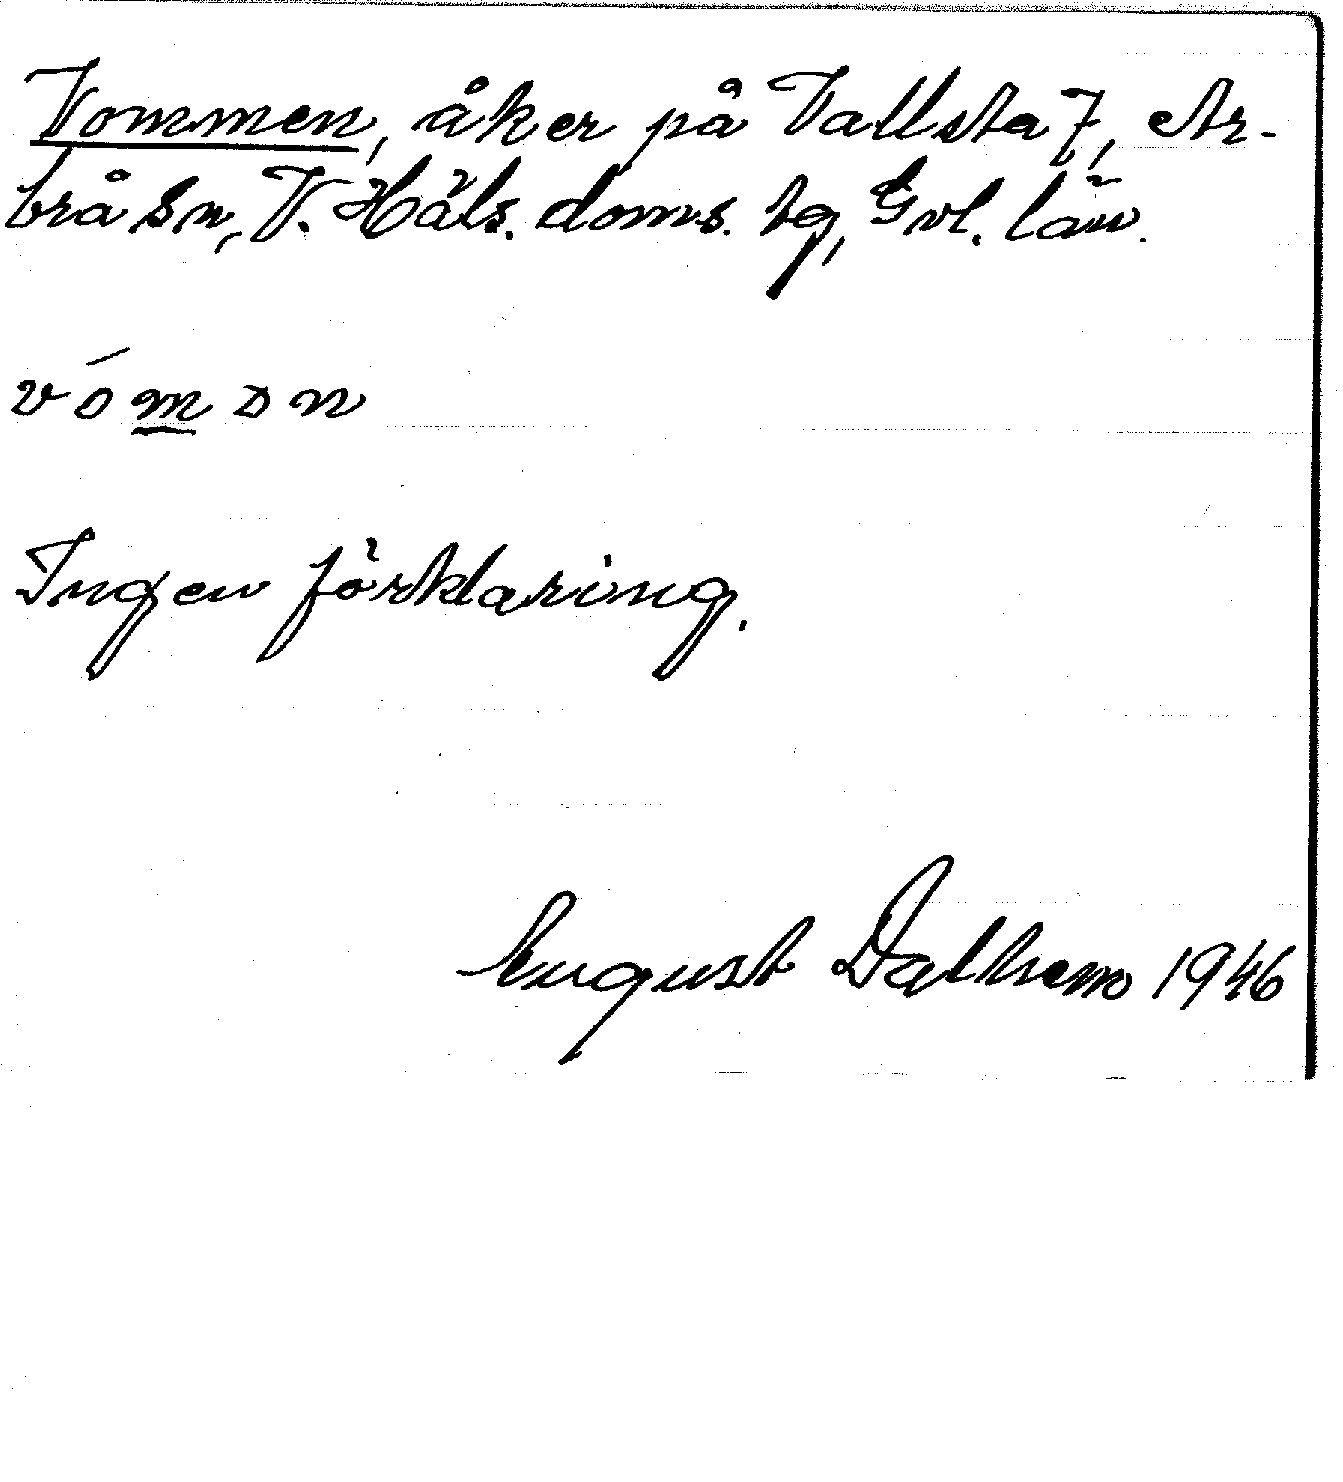 Vommen, åker på Vallsta 7, Ar-
brå sn, V. Häls. doms. tg, Gvl. län.
vómɔn
Ingen förklaring.
August Dalhem 1946